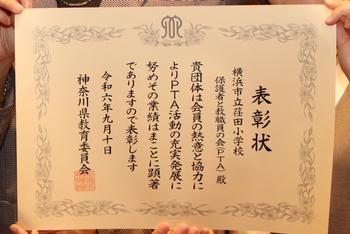 表彰状
横浜市立荏田小学校
保護者と教職員の会(PTA) 殿
貴団体は会員の熱意と協力に
よりPTA活動の充実発展に
努めその業績はまことに顕著
でありますので表彰します
令和六年九月十日
神奈川県教育委員会